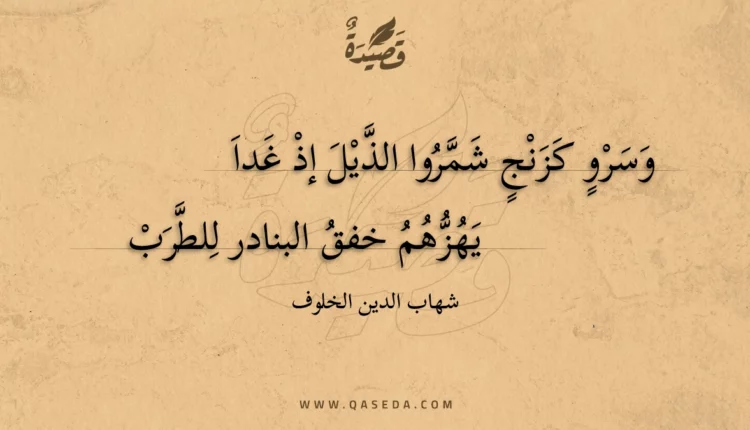 قَصِيدَةٌ
وَسَرْوٍ كَزَنْجٍ شَمَّرُوا الذَّيْلَ إذْ غَداَ
يَهُزُّهُمُ خفقُ البنادر لِلطَّرَبْ
شهاب الدين الخلوف
WWW.QASEDA.COM